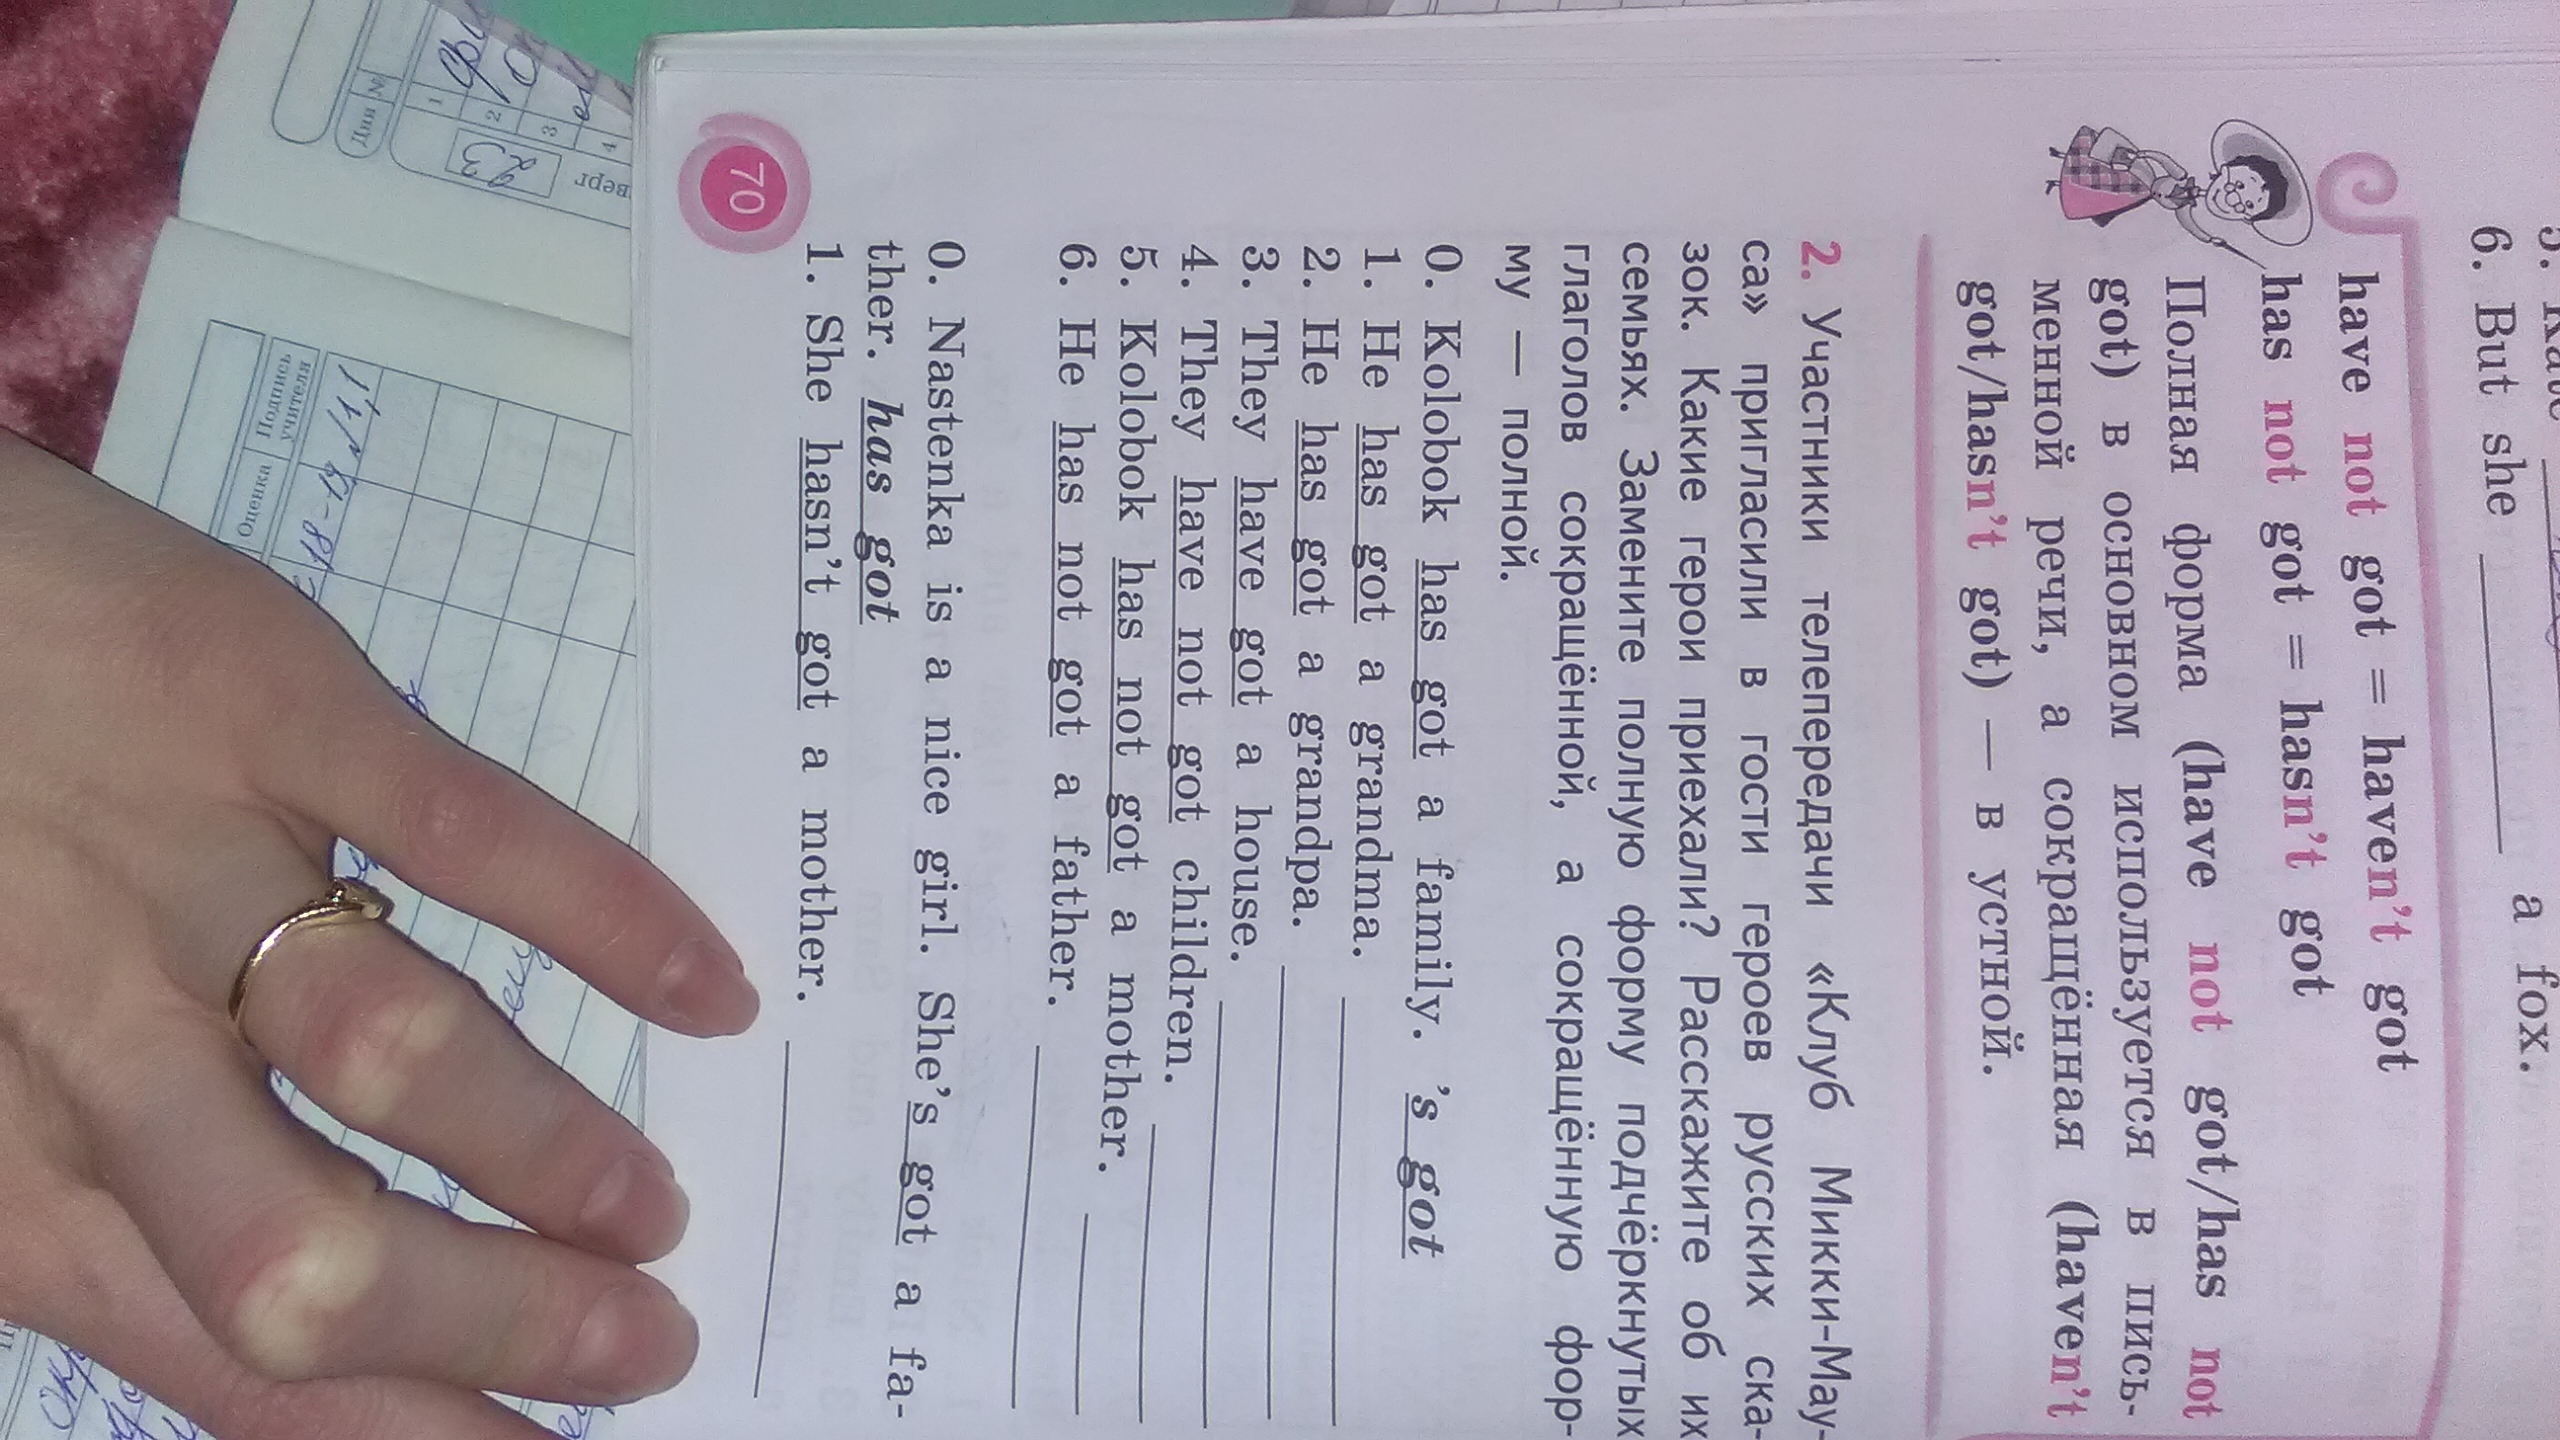 6. But she ________ a fox.
have not got = haven't got
has not got = hasn't got
Полная форма (have not got/has not
got) в основном используется в пись-
менной речи, а сокращённая (haven't
got/hasn't got) — в устной.
2. Участники телепередачи «Клуб Микки-Мау-
са» пригласили в гости героев русских ска-
зок. Какие герои приехали? Расскажите об их
семьях. Замените полную форму подчёркнутых
глаголов сокращённой, а сокращённую фор-
му — полной.
0. Kolobok has got a family. 's got
1. He has got a grandma. ________
2. He has got a grandpa. ________
3. They have got a house. ________
4. They have not got children. ________
5. Kolobok has not got a mother. ________
6. He has not got a father. ________
0. Nastenka is a nice girl. She's got a fa-
ther. has got
1. She hasn't got a mother. ________
70
Дни №
1
2
3
4
верг
23
Подпись
учителя
Оценка